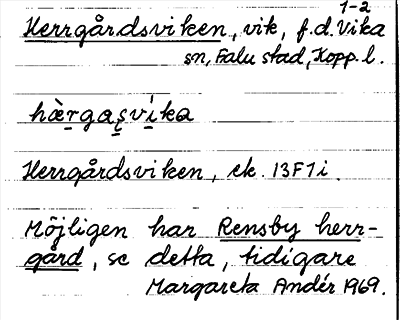 1-2
Herrgårdsviken, vik, f.d. Vika
sn, Falu stad, Kopp. l.
hæ̀rgaṣvíka
Herrgårdsviken, ek. 13F7i.
Möjligen har Rensby herr-
gård, se detta, tidigare
Margareta Andér 1969.